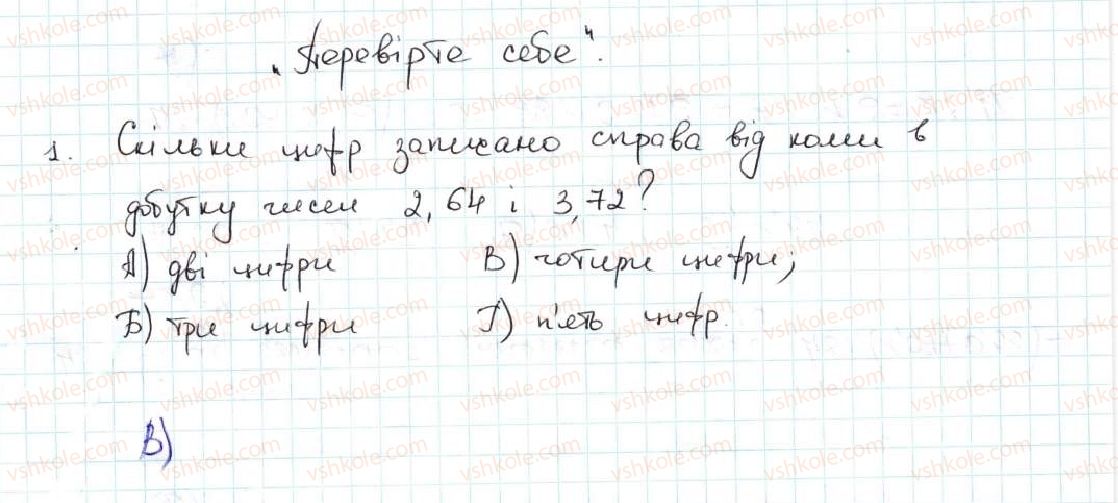 „Перевірте себе".
1. Скільки цифр записано справа від коми в
добутку чисел 2,64 і 3,72?
А) дві цифри В) чотири цифри;
Б) три цифри Г) п'ять цифр.
В)